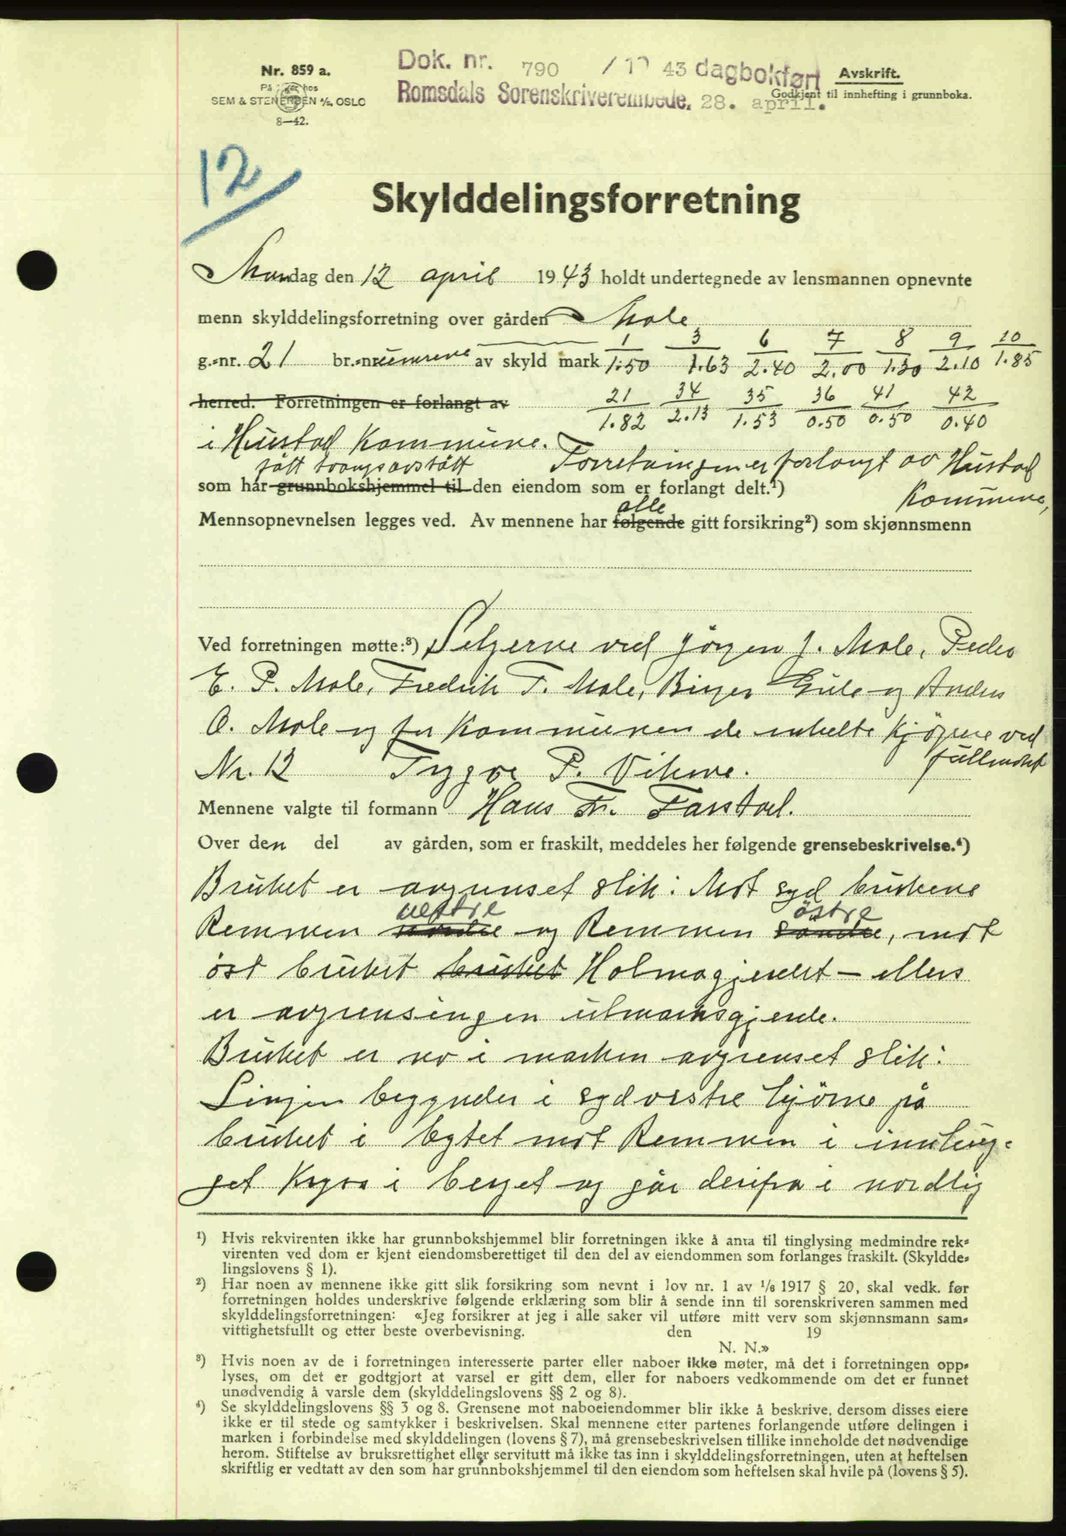 Nr. 859 a.
På lager hos
SEM & STENERSEN A/S, OSLO
8—42.
Dok. nr. 790 / 19 43 dagbokført
Romsdals Sorenskriverembede, 28. april.
Avskrift.
Godkjent til innhefting i grunnboka.
12
Skylddelingsforretning
Mandag den 12 april 1943 holdt undertegnede av lensmannen opnevnte
menn skylddelingsforretning over gården Male
g.-nr. 21 br.-nr. av skyld mark 1/1.50 3/1.63 6/2.40 7/2.00 8/1.30 9/2.10 10/1.85
herred. Forretningen er forlangt av 21/1.82 34/2.13 35/1.53 36/0.50 41/0.50 42/0.40
i Hustad Kommune. Forretningen er forlangt av Hustad
fått tvangsavstått
som har grunnbokshjemmel til den eiendom som er forlangt delt.¹) Kommune,
alle
Mennsopnevnelsen legges ved. Av mennene har følgende gitt forsikring²) som skjønnsmenn
Ved forretningen møtte:³) Selgerne ved Jörgen J. Male, Peder
E. P. Male, Fredrik T. Male, Birger Gule og Anders
O. Male og for Kommunen de enkelte Kjöpere ved
fullmakt
Nr. 12 Trygve P. Vikme.
Mennene valgte til formann Hans Fr. Farstad.
Over den del av gården, som er fraskilt, meddeles her følgende grensebeskrivelse.⁴)
Bruket er avgrenset slik: Mot syd brukene
vestre östre
Remmen nordre og Remmen söndre, mot
öst bruket bruket Holmagjerdet – ellers
er avgrensingen utmarksgjerde.
Bruket er no i marken avgrenset slik:
Linjen begynder i sydvestre hjörne på
bruket i bytet mot Remmen i innhug-
get Kryss i berget og går derifra i nordlig
¹) Hvis rekvirenten ikke har grunnbokshjemmel blir forretningen ikke å anta til tinglysing medmindre rek-
virenten ved dom er kjent eiendomsberettiget til den del av eiendommen som forlanges fraskilt. (Skyldde-
lingslovens § 1).
²) Har noen av mennene ikke gitt slik forsikring som nevnt i lov nr. 1 av 1/6 1917 § 20, skal vedk. før
forretningen holdes underskrive følgende erklæring som blir å sende inn til sorenskriveren sammen med
skylddelingsforretningen: «Jeg forsikrer at jeg i alle saker vil utføre mitt verv som skjønnsmann sam-
vittighetsfullt og etter beste overbevisning. den 19
N. N.»
³) Hvis noen av de i forretningen interesserte parter eller naboer ikke møter, må det i forretningen opp-
lyses, om det er godtgjort at varsel er gitt dem, eller for naboers vedkommende om det er funnet
unødvendig å varsle dem (skylddelingslovens §§ 2 og 8).
⁴) Se skylddelingslovens §§ 3 og 8. Grensene mot naboeiendommer blir ikke å beskrive, dersom disses eiere
ikke er til stede og samtykker i beskrivelsen. Skal mennene etter partenes forlangende utføre delingen i
marken i forbindelse med skylddelingen (lovens § 7), må grensebeskrivelsen tillike inneholde det nødvendige
herom. Stiftelse av bruksrettighet eller servitutt må ikke tas inn i skylddelingsforretningen, uten at heftelsen
skriftlig er vedtatt av den som har grunnbokshjemmel til den eiendom som heftelsen skal hvile på (lovens § 5).